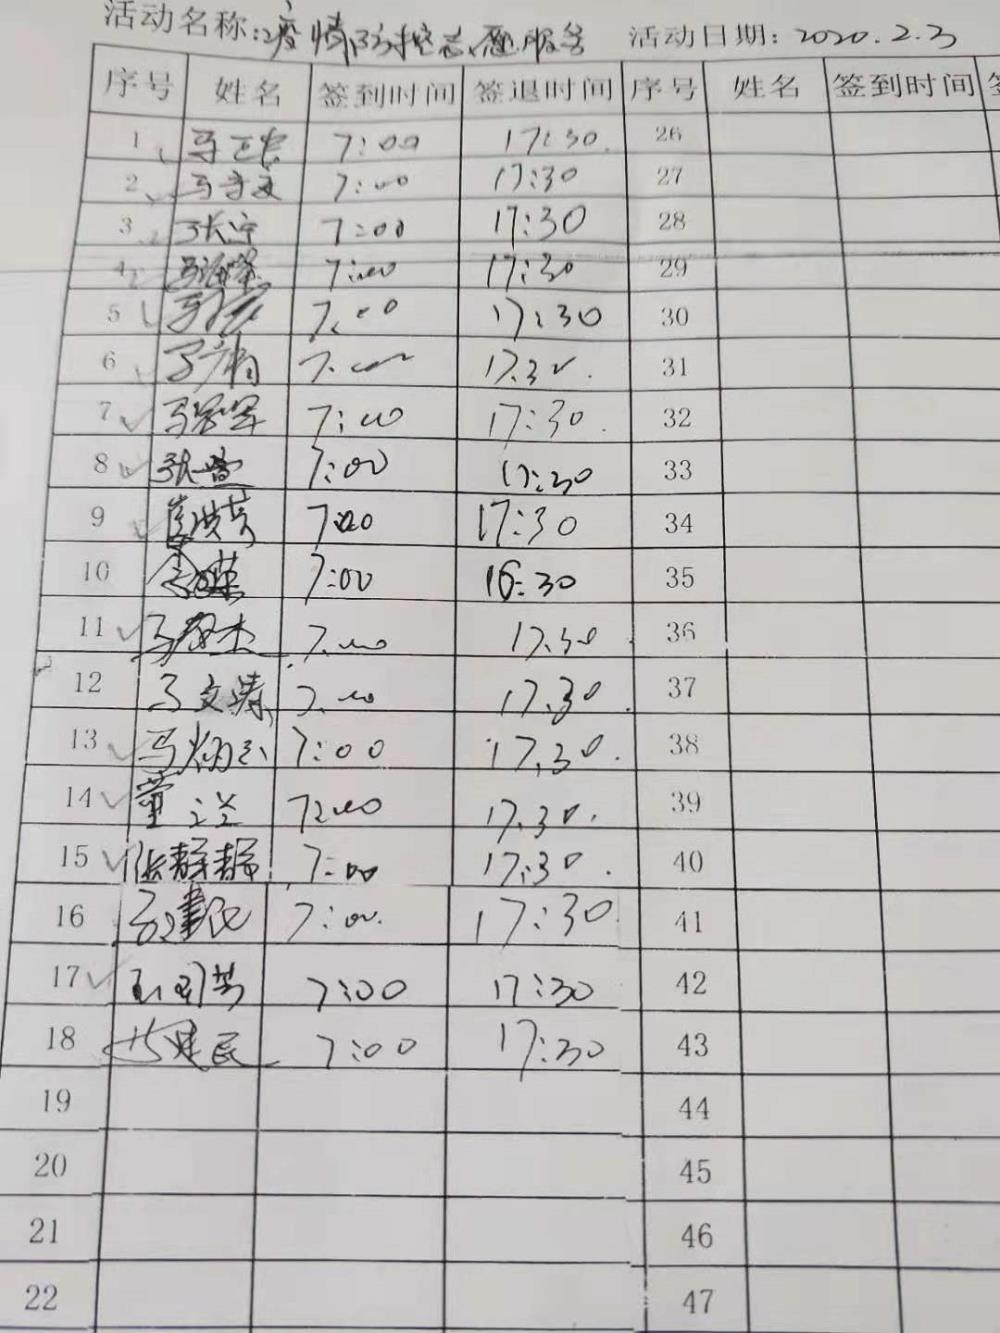 活动名称:疫情防控志愿服务 活动日期:2020.2.3
序号 姓名 签到时间 签退时间 序号 姓名 签到时间
1 7:00 17:30 26
2 马 7:00 17:30 27
3 张宁 7:00 17:30 28
4 马海峰 7:00 17:30 29
5 马 7:00 17:30 30
6 马 7:00 17:30 31
7 马 7:00 17:30 32
8 张雪 7:00 17:30 33
9 7:00 17:30 34
10 7:00 16:30 35
11 马 杰 7:00 17:30 36
12 马文涛 7:00 17:30 37
13 马炳 7:00 17:30 38
14 董 7:00 17:30 39
15 张静静 7:00 17:30 40
16 马建民 7:00 17:30 41
17 7:00 17:30 42
18 建民 7:00 17:30 43
19 44
20 45
21 46
22 47